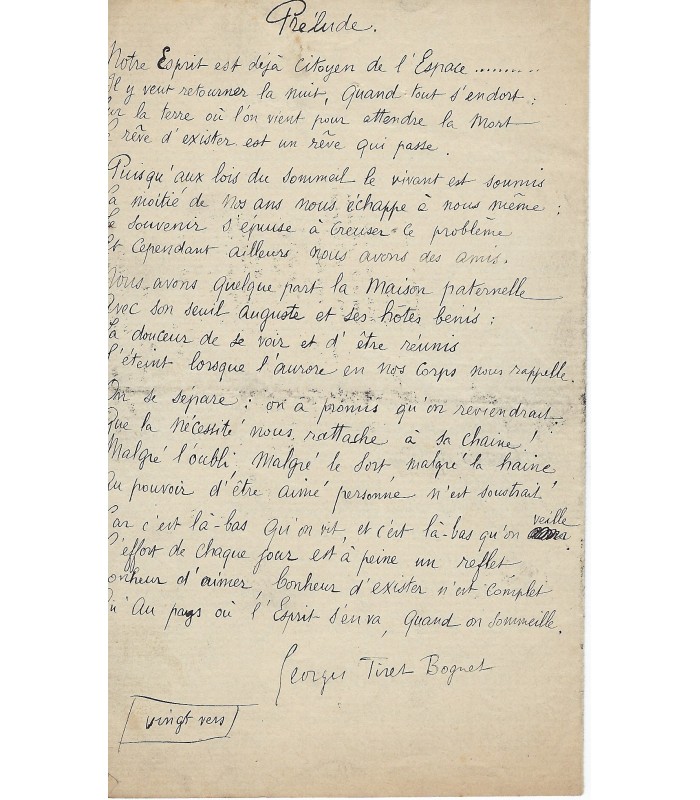 Prélude.
Notre Esprit est déjà citoyen de l'Espace .........
Il y veut retourner la nuit, Quand tout s'endort :
Sur la terre où l'on vient pour attendre la Mort
Le rêve d'exister est un rêve qui passe.
Puisqu'aux lois du sommeil le vivant est soumis
La moitié de Nos ans nous échappe à nous même :
Le souvenir s'épuise à Creuser Ce problème
Et Cependant ailleurs nous avons des amis.
Nous avons quelque part la Maison paternelle
Avec son seuil auguste et ses hôtes benis :
La douceur de se voir et d' être réunis
S'éteint lorsque l'aurore en nos Corps nous rappelle.
On se sépare : on a promis qu'on reviendrait
Que la Nécessité nous rattache à sa chaine !
Malgré l'oubli, Malgré le Sort malgré la haine
Au pouvoir d'être aimé personne n'est soustrait !
Car c'est là-bas Qu'on vit, et c'est là-bas qu'on veille
L'effort de Chaque jour est à peine un reflet
Bonheur d'aimer, bonheur d'exister n'est Complet
Qu' Au pays où l'Esprit s'en va, Quand on sommeille.
Georges Tiret Bognet
vingt vers